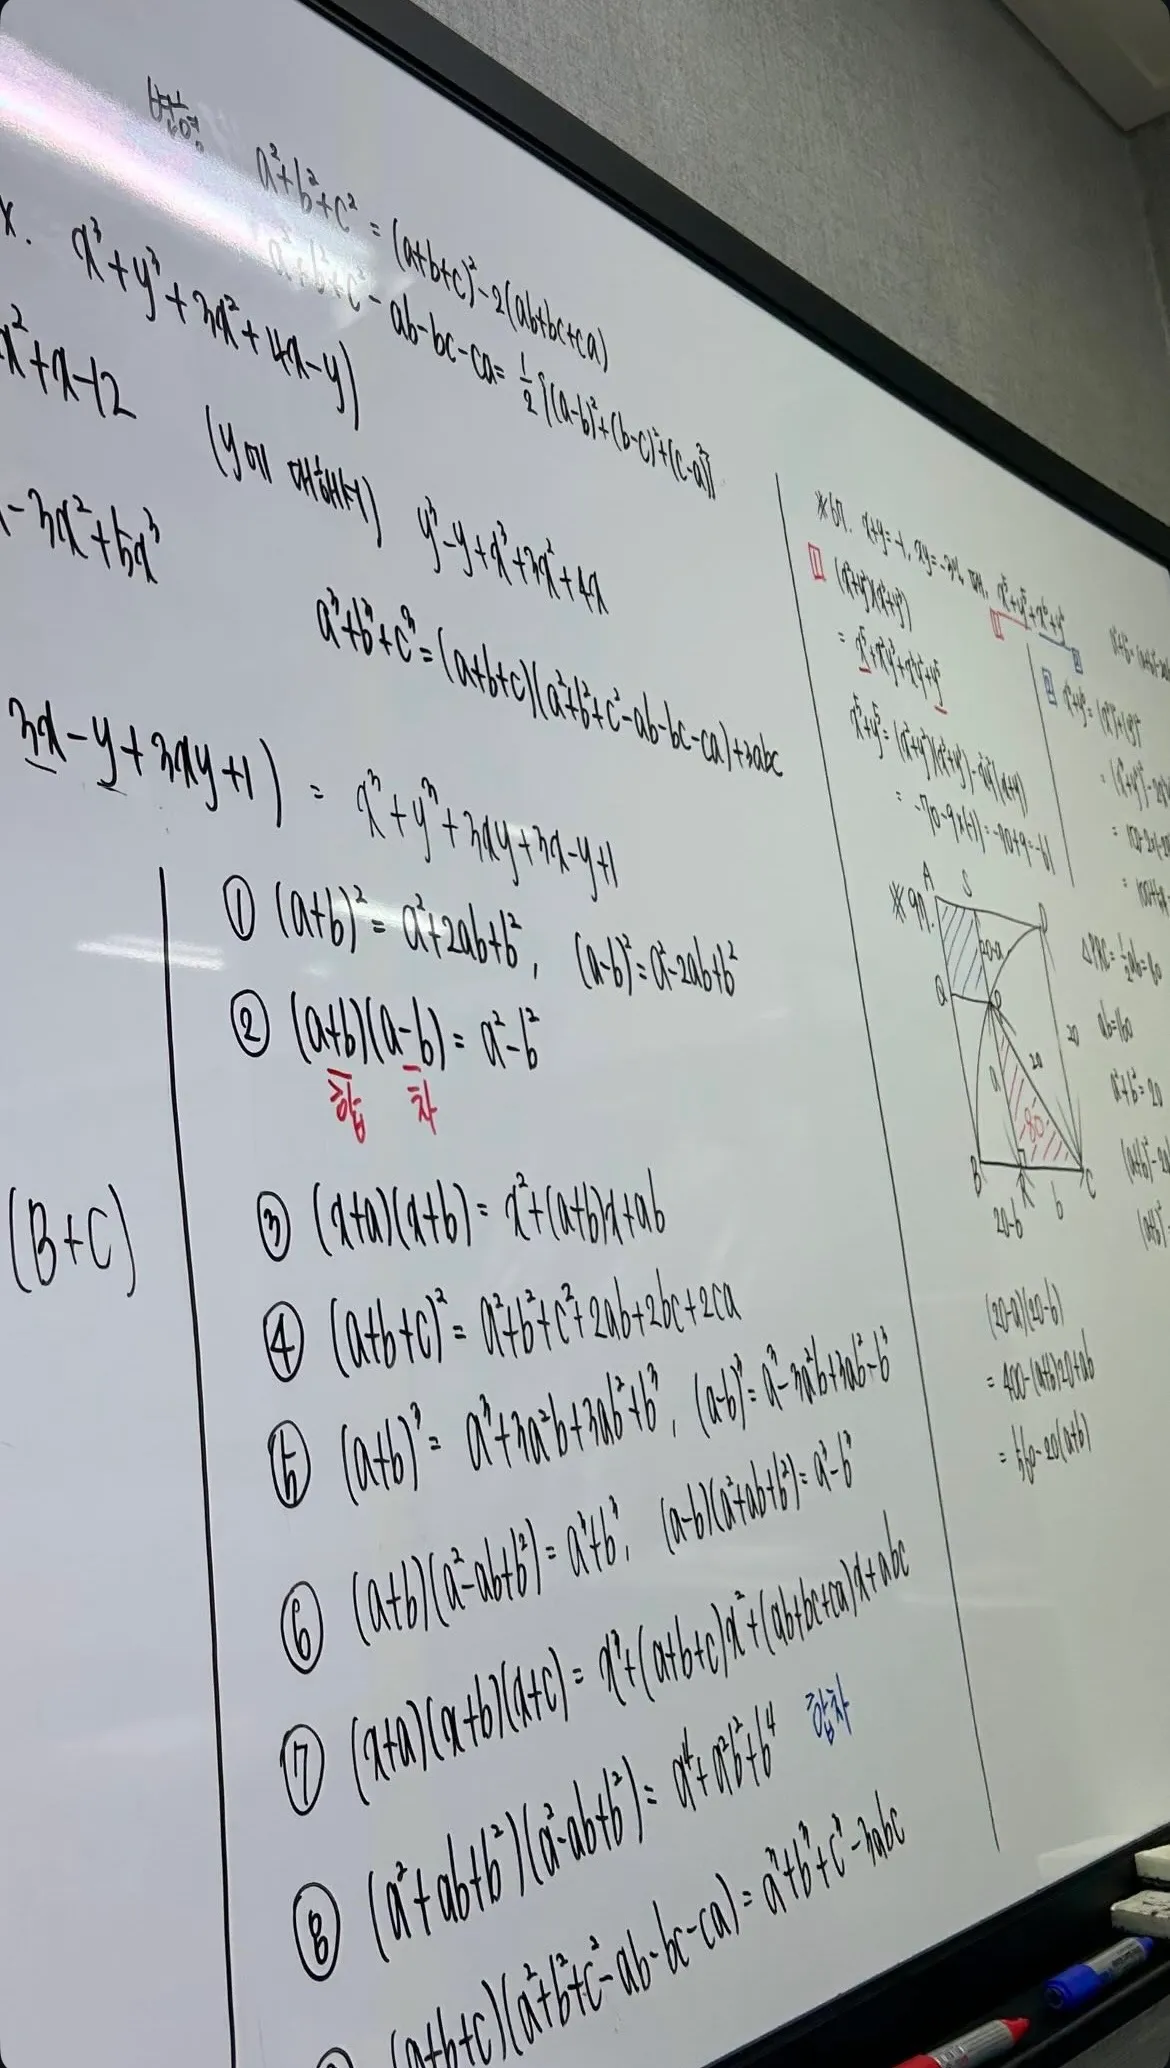 변형
a²+b²+c² = (a+b+c)²-2(ab+bc+ca)
a²+b²+c²-ab-bc-ca = 1/2{(a-b)²+(b-c)²+(c-a)²}
x³+y³+3x²+4x-y)
x²+x-12
(y에 대해서) y³-y+x³+3x²+4x
-3x²+5x³
a³+b³+c³=(a+b+c)(a²+b²+c²-ab-bc-ca)+3abc
3x-y+3xy+1) = x³+y³+3xy+3x-y+1
① (a+b)² = a²+2ab+b², (a-b)²=a²-2ab+b²
② (a+b)(a-b) = a²-b²
합 차
(B+C)
③ (x+a)(x+b) = x²+(a+b)x+ab
④ (a+b+c)² = a²+b²+c²+2ab+2bc+2ca
⑤ (a+b)³ = a³+3a²b+3ab²+b³, (a-b)³=a³-3a²b+3ab²-b³
⑥ (a+b)(a²-ab+b²) = a³+b³, (a-b)(a²+ab+b²)=a³-b³
⑦ (x+a)(x+b)(x+c) = x³+(a+b+c)x²+(ab+bc+ca)x+abc
⑧ (a²+ab+b²)(a²-ab+b²) = a⁴+a²b²+b⁴ 합차
(a+b+c)(a²+b²+c²-ab-bc-ca) = a³+b³+c³-3abc
x+y=-1, xy=-3
1 (x²+y²)(x³+y³)
= x⁵+x²y³+x³y²+y⁵
x⁵+y⁵=(x²+y²)(x³+y³)-x²y²(x+y)
= -70-9×(-1)=-70+9=-61
2
A S D
Q P
20-a
20
20
a
80
B R C
20-b b
△PRC=½ab=80
ab=160
a²+b²=20
(a+b)²-2a
(a+b)²
(20-a)(20-b)
= 400-(a+b)20+ab
= 560-20(a+b)